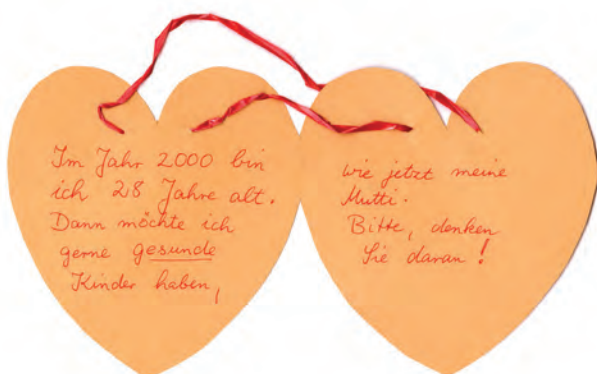 Im Jahr 2000 bin
ich 28 Jahre alt.
Dann möchte ich
gerne gesunde
Kinder haben,
wie jetzt meine
Mutti.
Bitte, denken
Sie daran!